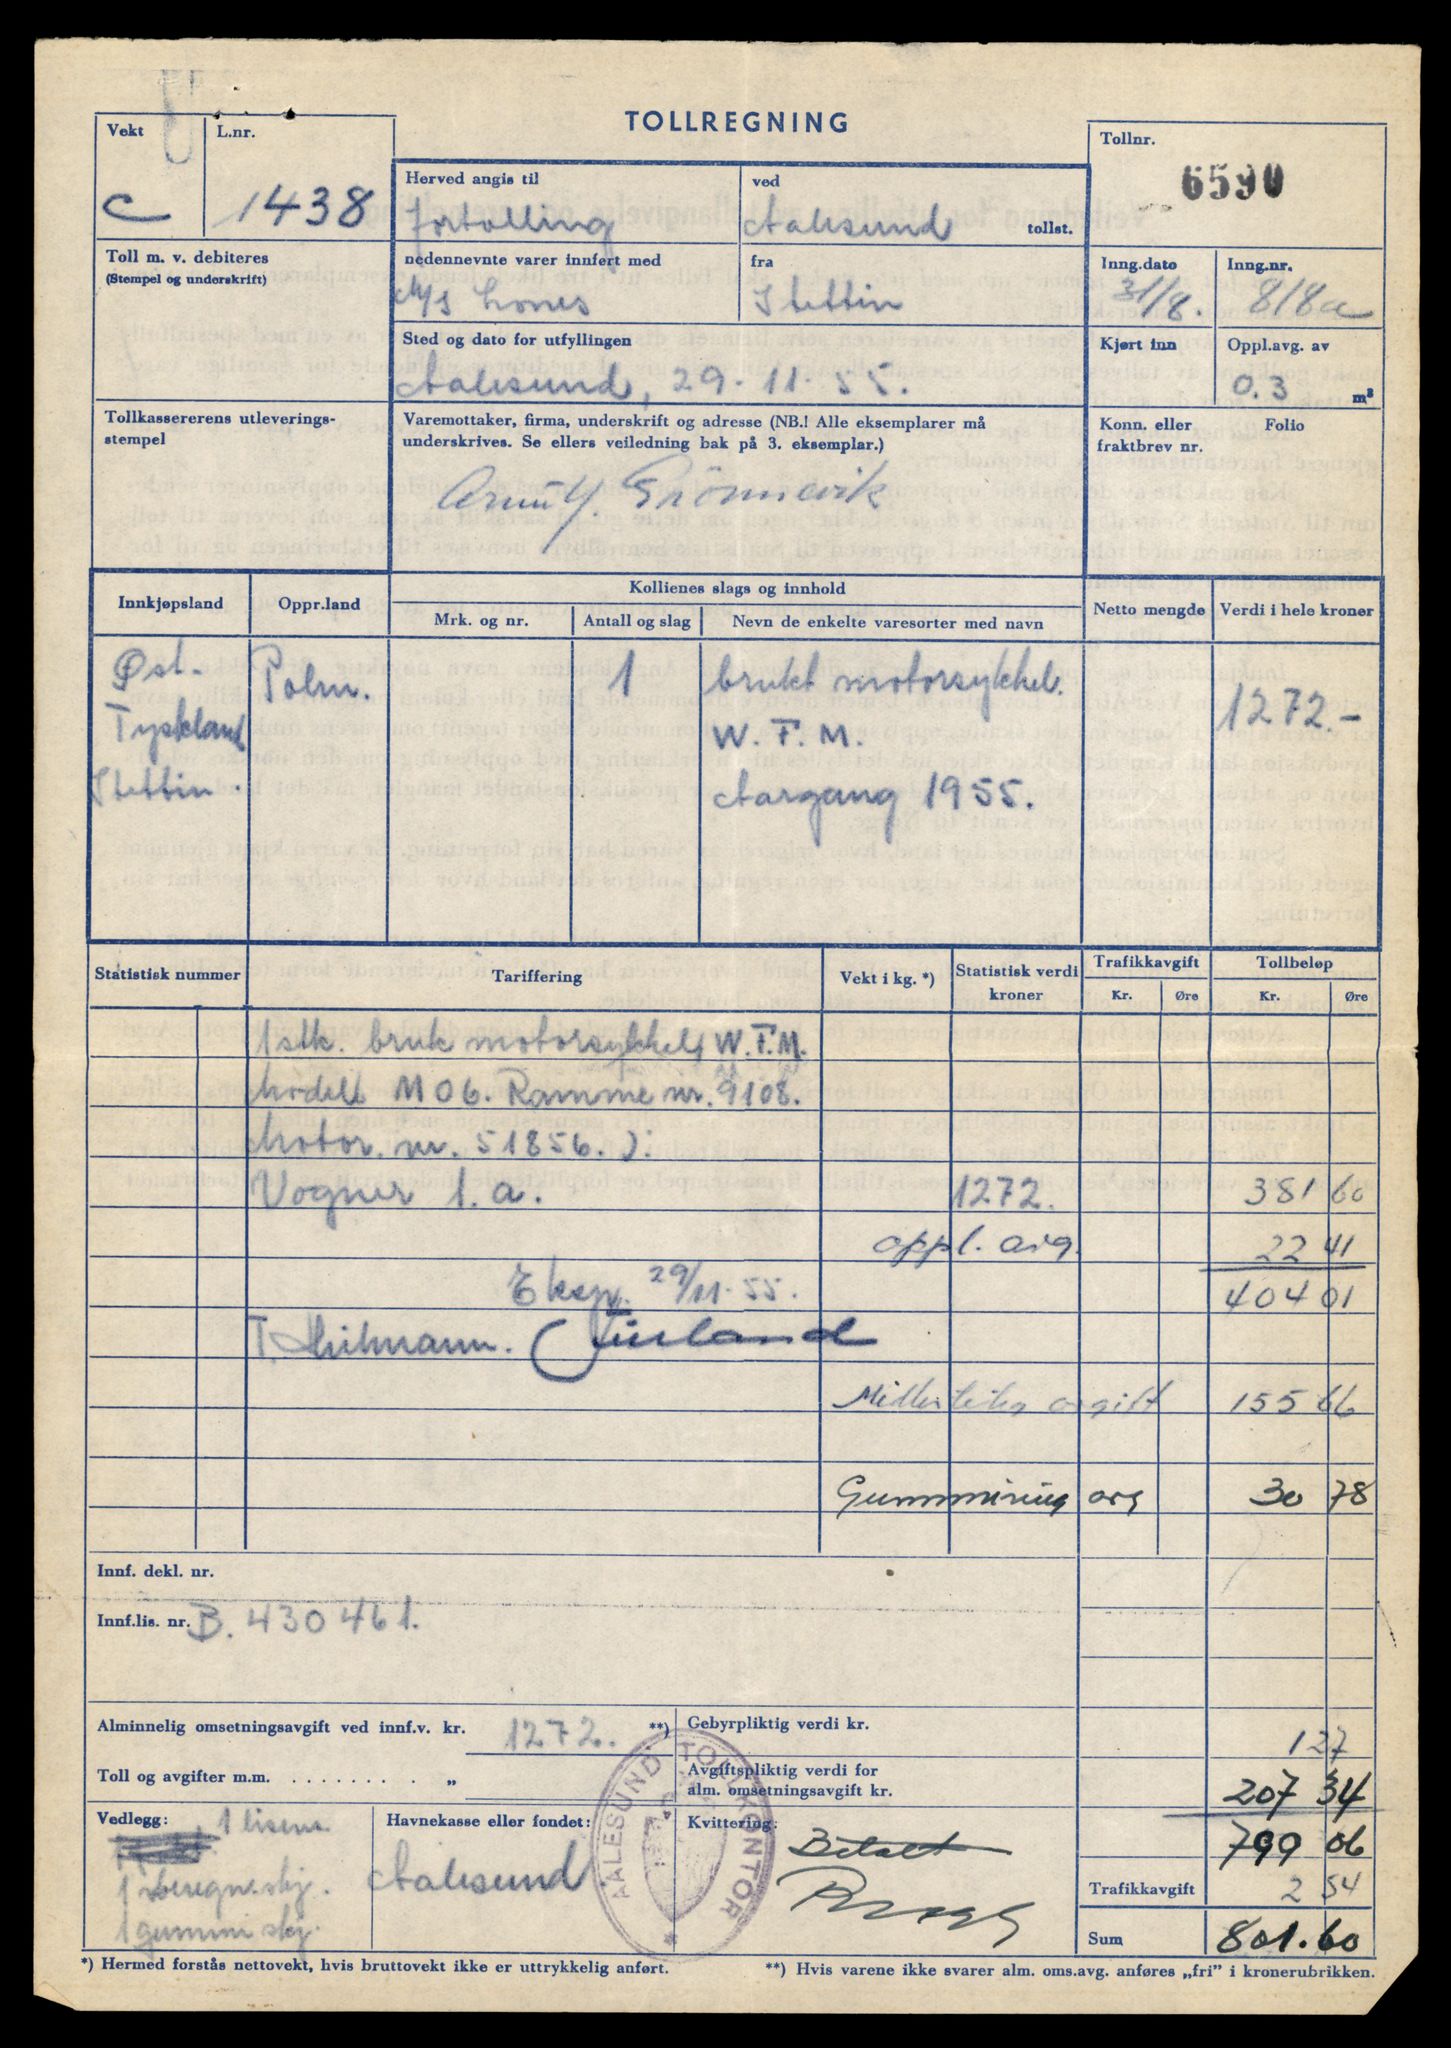 TOLLREGNING
Vekt
C
L.nr.
1438
Herved angis til
fortolling
ved
Aalesund tollst.
Tollnr.
6590
Toll m. v. debiteres
(Stempel og underskrift)
nedennevnte varer innført med
M/S
fra
Stettin
Inng.dato
31/8.
Inng.nr.
818a
Sted og dato for utfyllingen
Aalesund, 29.11.55.
Kjørt inn
Oppl.avg. av
0.3 m³
Tollkassererens utleverings-
stempel
Varemottaker, firma, underskrift og adresse (NB.! Alle eksemplarer må
underskrives. Se ellers veiledning bak på 3. eksemplar.)
Grönnevik
Konn. eller
fraktbrev nr.
Folio
Innkjøpsland
Oppr.land
Kollienes slags og innhold
Mrk. og nr.
Antall og slag
Nevn de enkelte varesorter med navn
Netto mengde
Verdi i hele kroner
Øst- Polen. 1 brukt motorsykkel. 1272-
Tyskland W. F. M.
Stettin Aargang 1955.
Statistisk nummer
Tariffering
Vekt i kg. *)
Statistisk verdi
kroner
Trafikkavgift
Kr. Øre
Tollbeløp
Kr. Øre
1 stk. bruk motorsykkel W.F.M.
Modell M 06. Ramme nr. 9108.
Motor. nr. 51856. ):
Vogner 1. a. 1272. 381 60
oppl. avg. 22 41
Eksp. 29/11.55. 404 01
avgift 155 66
avg 30 78
Innf. dekl. nr.
Innf.lis. nr. B. 430461.
Alminnelig omsetningsavgift ved innf.v. kr. 1272. **)
Gebyrpliktig verdi kr.
1 27
Toll og avgifter m.m. . . . . . . . . „
Avgiftspliktig verdi for
alm. omsetningsavgift kr.
207 34
Vedlegg:
1 lisens
1 beregn.skj.
1 gummi skj.
Havnekasse eller fondet:
Aalesund.
Kvittering:
Betalt
AALESUND TOLLKONTOR
799 06
Trafikkavgift 2 54
Sum 801.60
*) Hermed forstås nettovekt, hvis bruttovekt ikke er uttrykkelig anført.
**) Hvis varene ikke svarer alm. oms.avg. anføres „fri” i kronerubrikken.